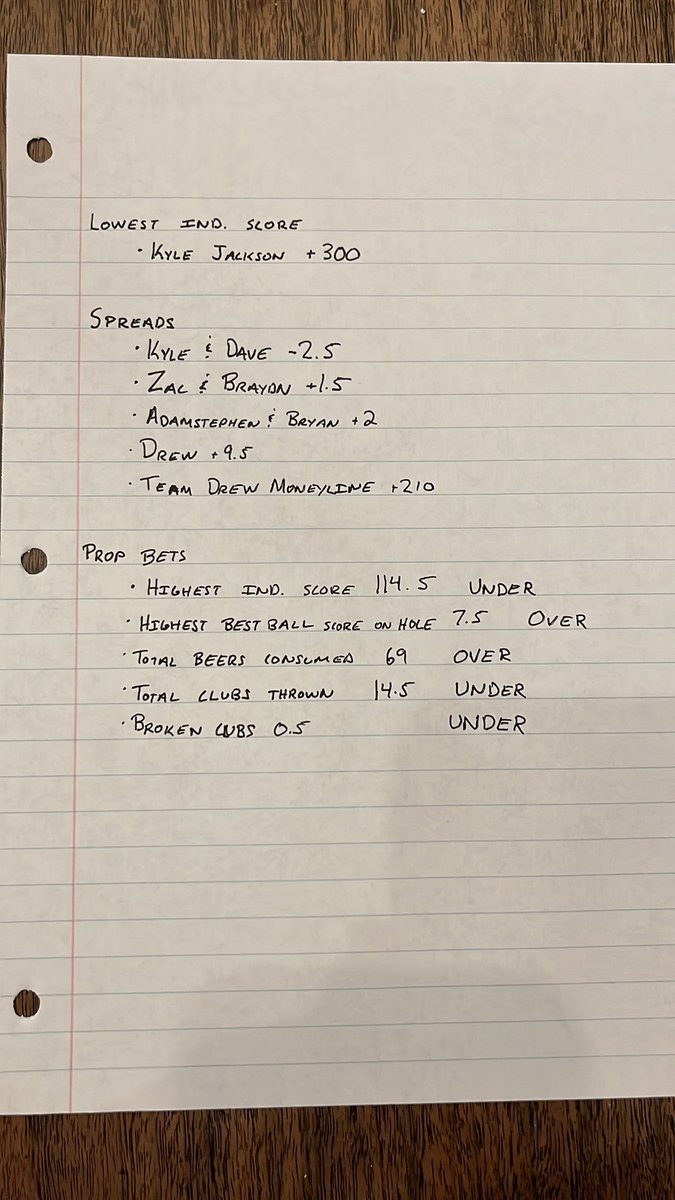 LOWEST IND. SCORE
· KYLE JACKSON +300
SPREADS
· KYLE & DAVE -2.5
· ZAC & BRAYDN +1.5
· ADAMSTEPHEN & BRYAN +2
· DREW +9.5
· TEAM DREW MONEYLINE +210
PROP BETS
· HIGHEST IND. SCORE 114.5 UNDER
· HIGHEST BEST BALL SCORE ON HOLE 7.5 OVER
· TOTAL BEERS CONSUMED 69 OVER
· TOTAL CLUBS THROWN 14.5 UNDER
· BROKEN CLUBS 0.5 UNDER